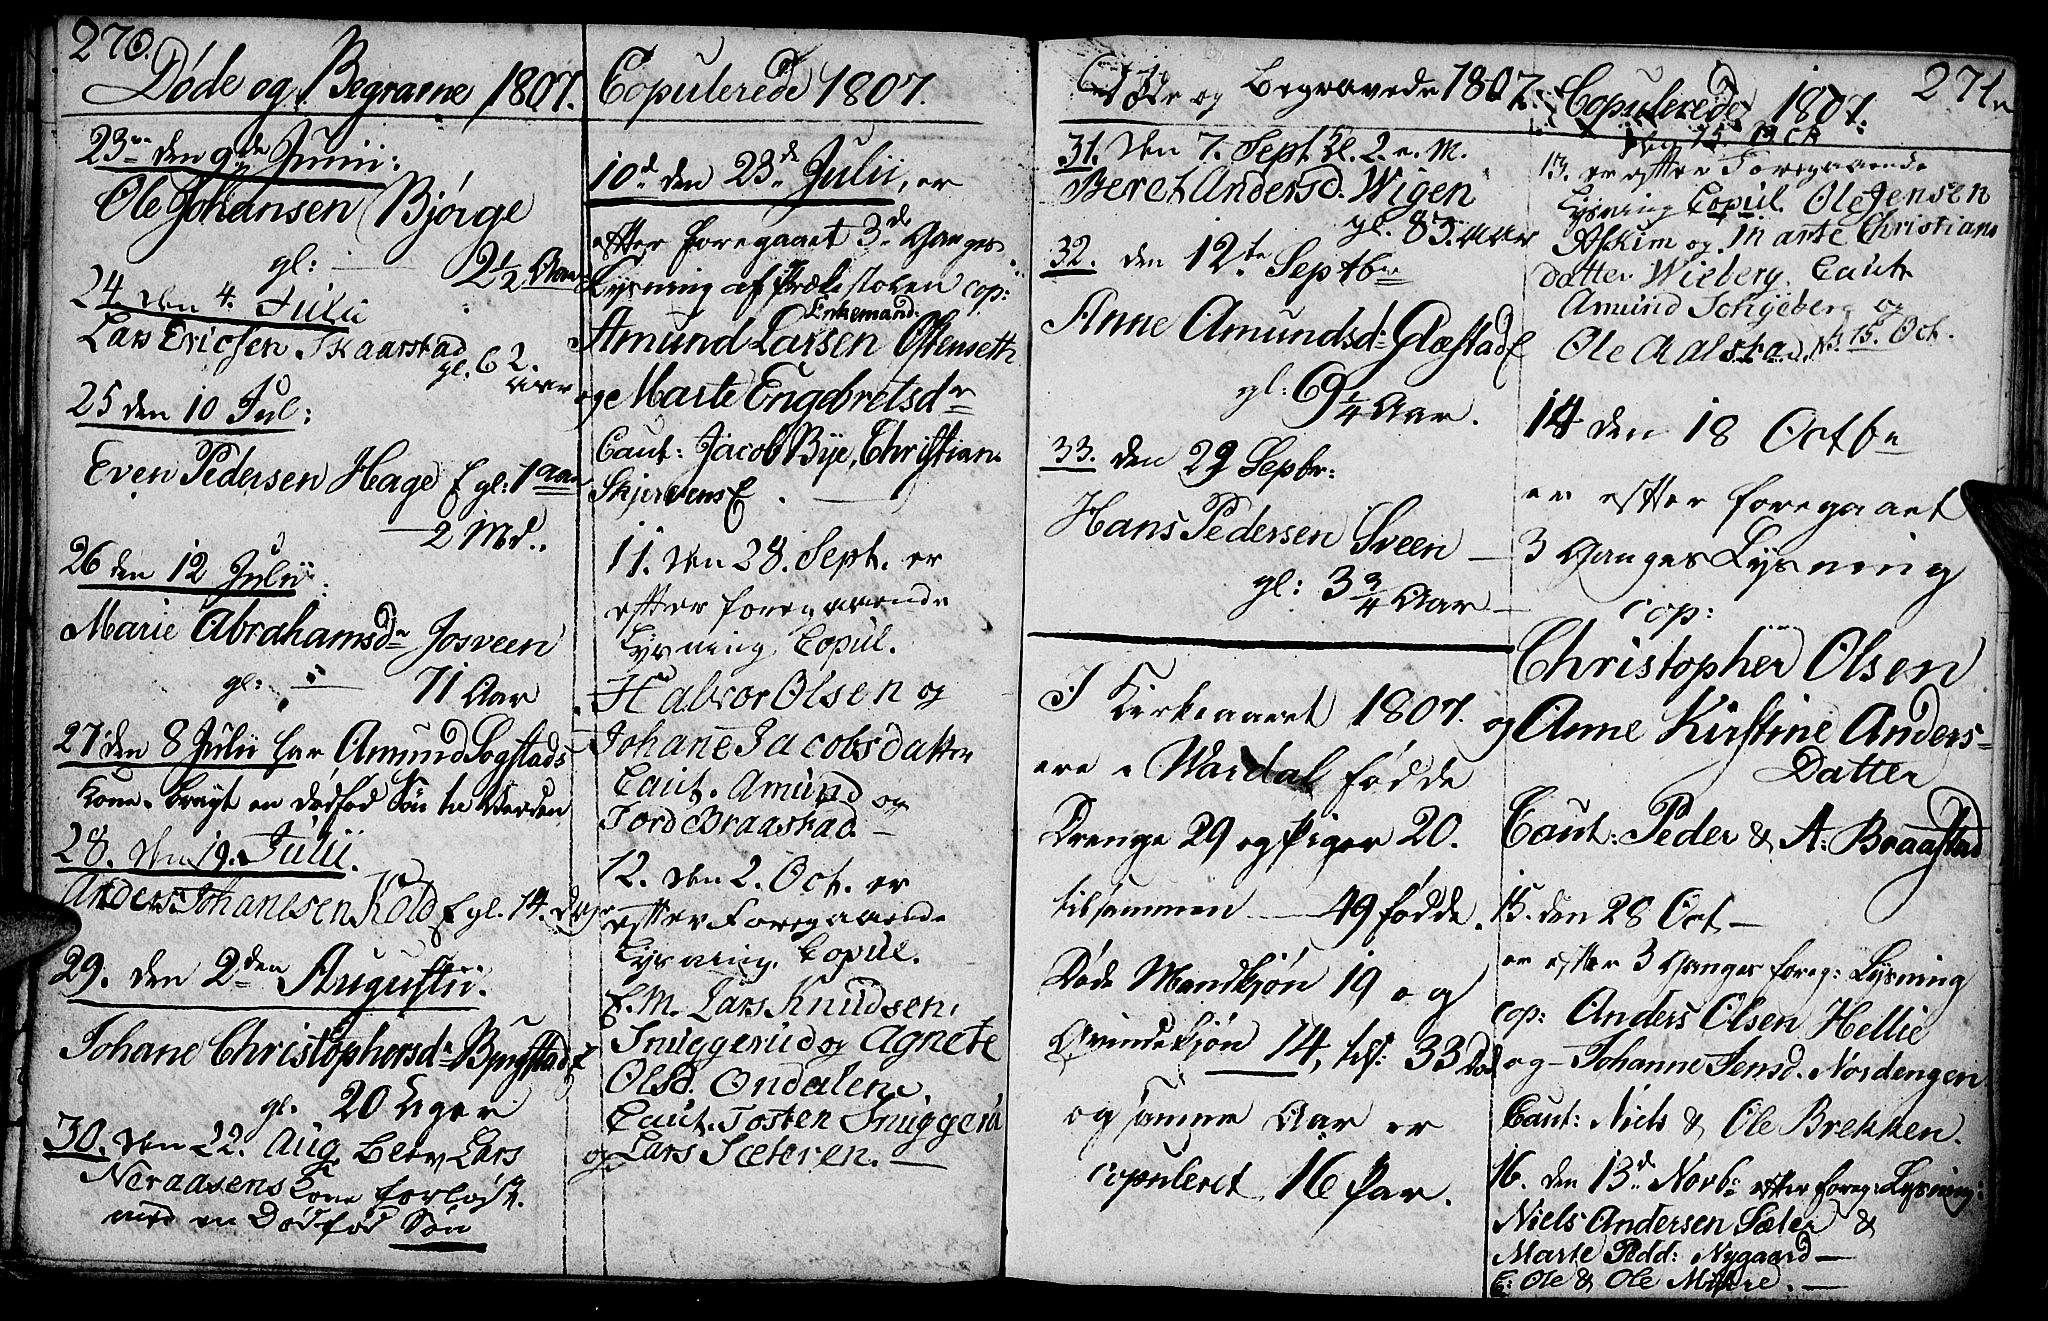 270.
Døde og Begravne 1807.
23de den 9de Junii:
Ole Johansen Bjørge
gl: — 2 1/2 Aar
24 den 4. Julii
Lars Ericsen Skaarstad
gl. 62.
Aar
25 den 10 Jul:
Even Pedersen Hage gl: 1 Aar
— 2 Md.
26 den 12 Julii
Marie Abrahamsdr Josveen
gl: — 71 Aar
27 den 8 Julii har Amund Sogstads
Kone bragt en dødfød Søn til Verden
28. den 19. Julii.
Anders Johannesen Kold gl. 14. Dage
29. den 2den Augustii.
Johane Christophersdr
gl. 20 Uger
30. den 22. Aug. blev Lars
Neraasens Kone forløst
med en Dødfød Søn
Copulerede 1807.
10d den 23de Julii, er
efter foregaaet 3de Ganges
Lysning af Prækestolen cop:
Enkemand:
Amund Larsen Ostenseth
og Marte Engebretsdr
Caut: Jacob Bye, Christian
11. den 28. Sept. er
efter foregaaende
Lysning Copul.
Halvor Olsen og
Johane Jacobsdatter
Caut. Amund og
Tord Braastad —
12. den 2. Oct. er
efter Foregaaende
Lysning Copul.
E.M. Lars Knudsen
Snuggerud og Agnete
Olsd. Ondalen
Caut. Tosten Snuggerud
og Lars Sæteren. —
Døde og Begravede 1807.
31. den 7. Sept.
Beret Andersd. Wigen
gl. 83. Aar
32. den 12te Septbr
Anne Amundsd: Glæstad
gl: 6 1/4 Aar.
33. den 29 Sepbr:
Hans Pedersen Sveen —
gl: 3 3/4 Aar —
I Kirkeaaret 1807.
ere i Wardal fødde
Drenge 29 og Piger 20.
tilsammen — 49 fødde.
Døde Mandkjøn 19 og
Qvindekjøn 14, til: 33 Død
og samme Aar er
copuleret 16 Par.
271
Copulerede 1807.
13. er efter Foregaaende
Lysning Copul. Ole Jensen
Askim og Marte Christians
datter Wieberg. Caut.
Amund og
Ole Aalstad. 15. Oct.
14 den 18 Octbr
er efter foregaaet
3 Ganges Lysning
cop:
Christopher Olsen
og Anne Kirstine Anders-
Datter
Caut: Peder & A: Braastad
15. den 28 Oct —
er efter 3 Ganges foreg: Lysning
cop: Anders Olsen Hellie
og — Johanne Jensd. Nordengen
Caut: Niels & Ole Brekken.
16. den 13de Novbr efter foreg: Lysning:
Niels Andersen Sæter &
Marte Pedd: Nygaard —
C: Ole & Ole —